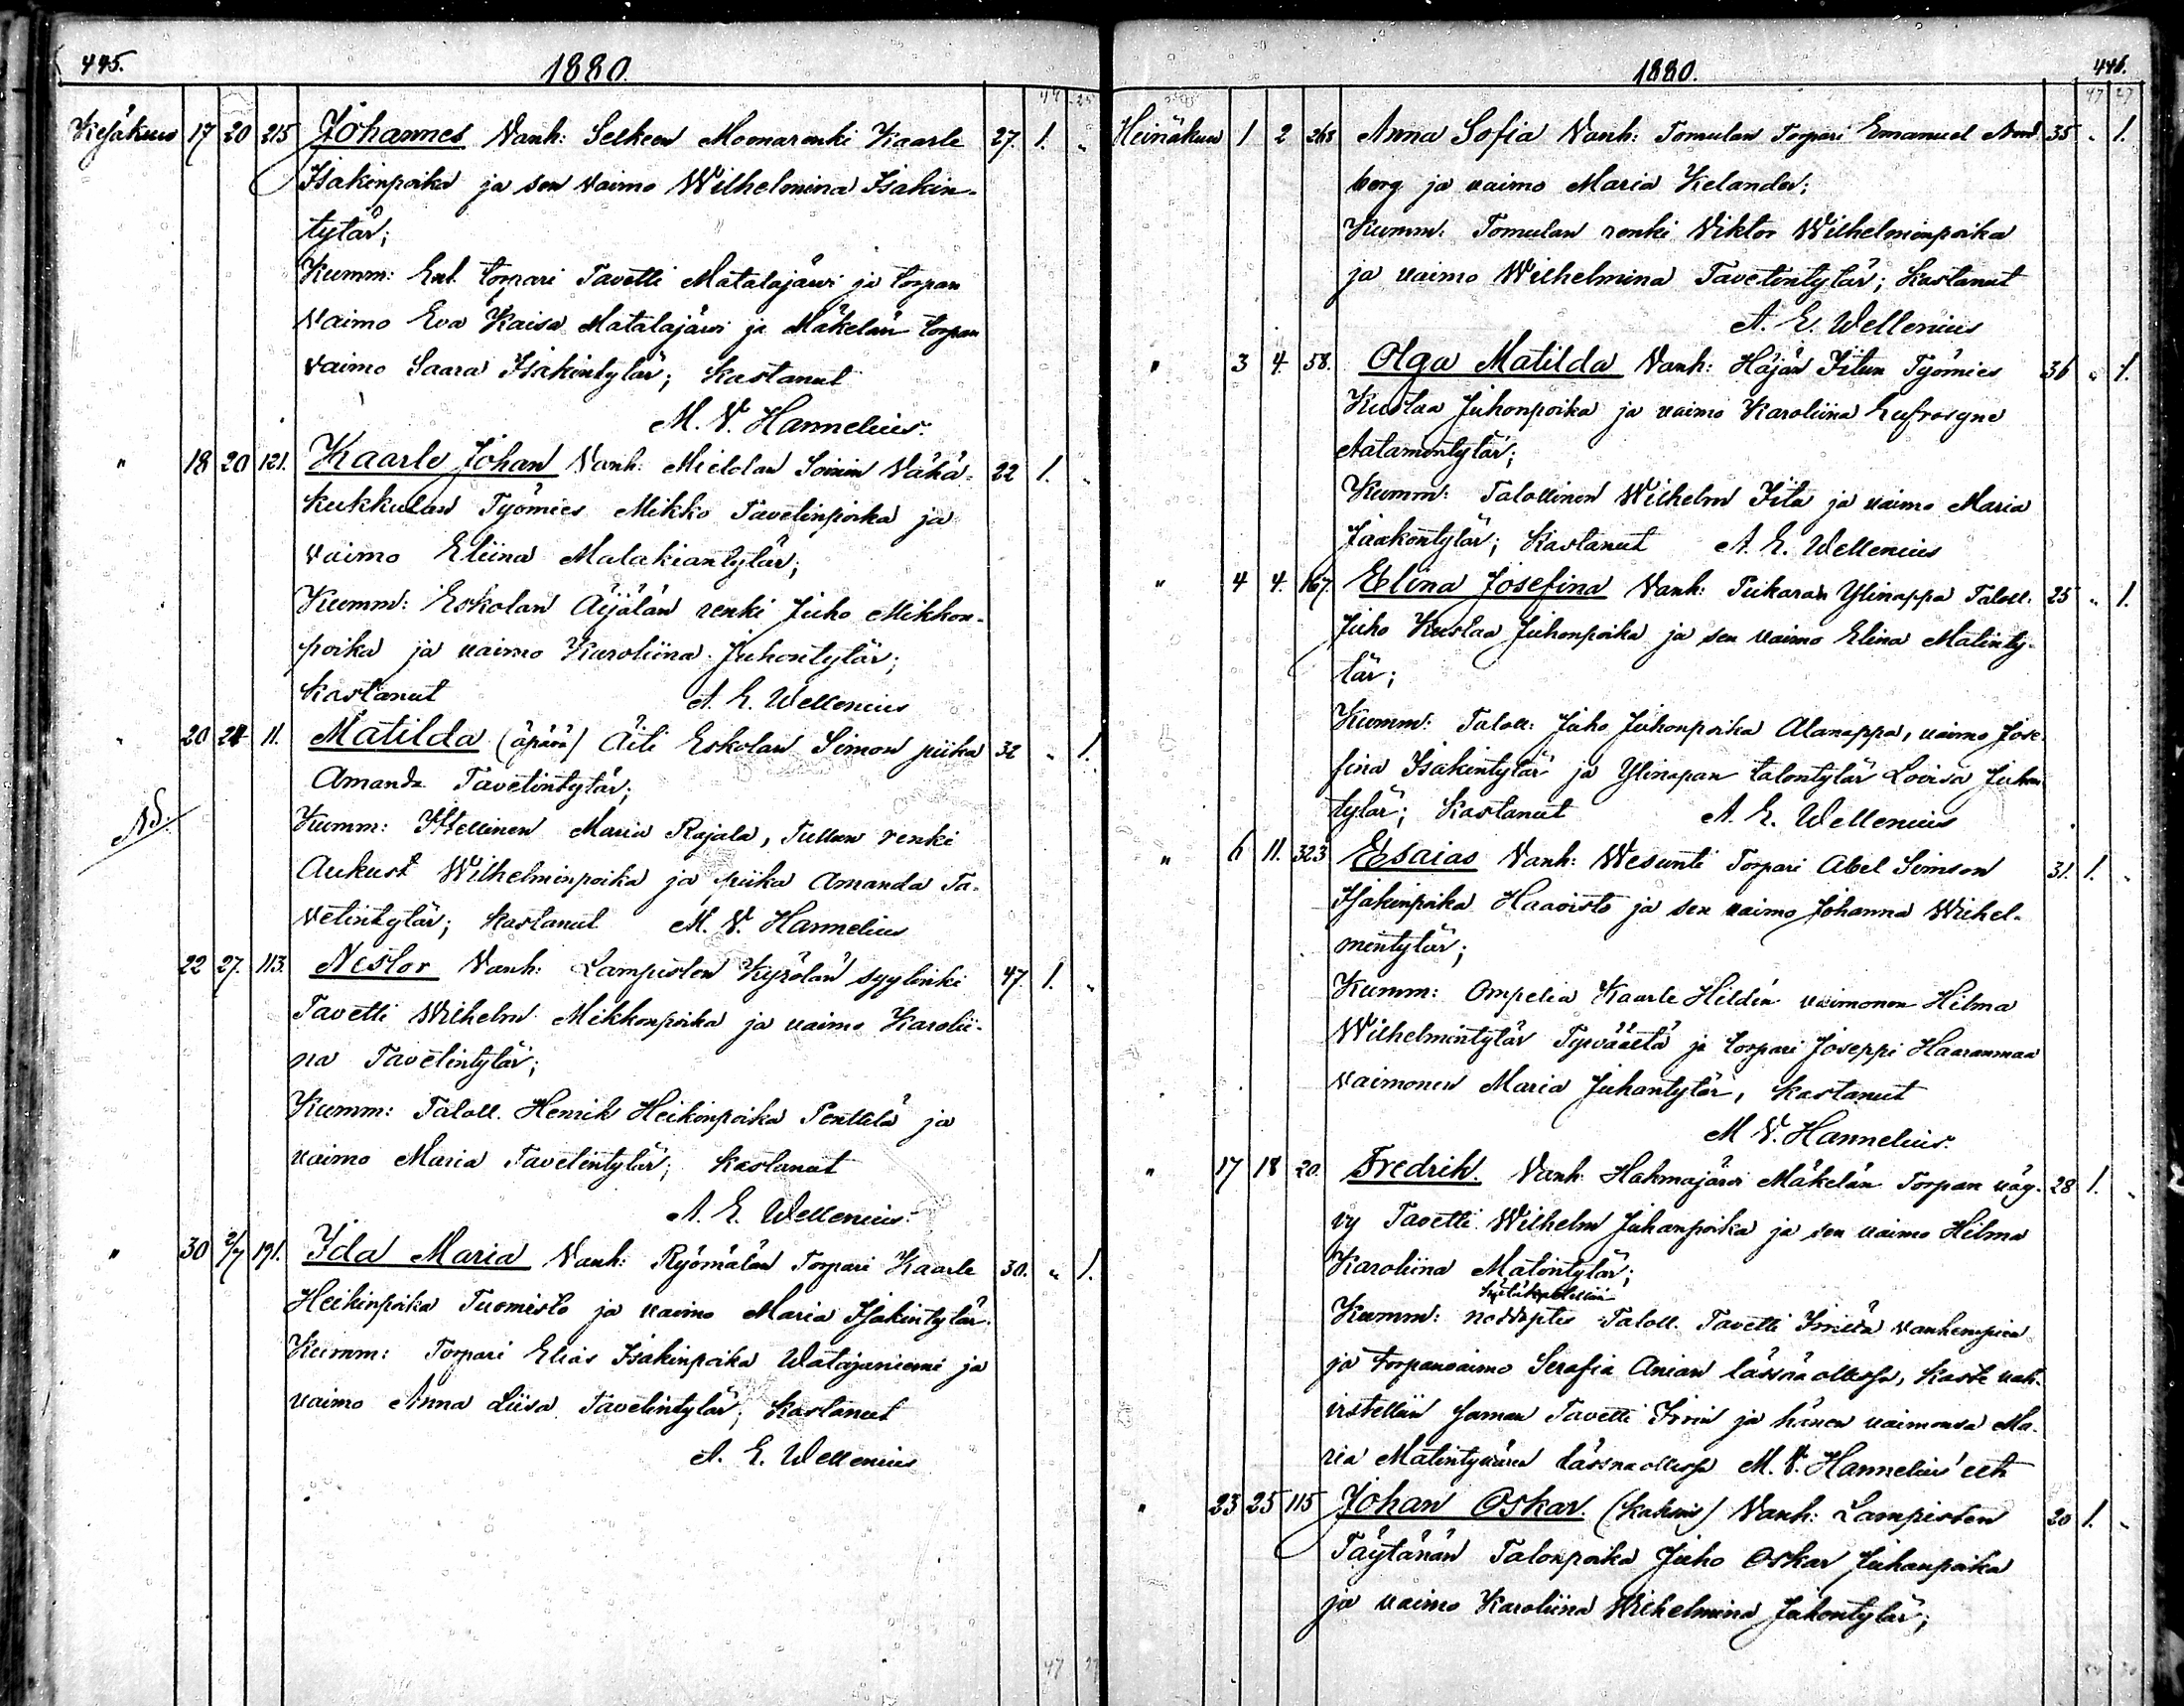 445.
1880.
Kesäkuu 17 20 215 Johannes Vanh: Selkeen Moonarenki Kaarle 27. 1. "
Isakinpoika ja sen vaimo Wilhelmina Isakin-
tytär;
Kumm: Ent. torpari Tavetti Matalajärvi ja torpan
vaimo Eva Kaisa Matalajärvi ja Mäkelän torpan
vaimo Saara Isakintytär; Kastanut
M. V. Hannelius.
" 18 20 121. Kaarle Johan Vanh: Mielolan Soinin Vähä- 22 1. "
kukkulan Työmies Mikko Tavetinpoika ja
vaimo Eliina Malakiantytär;
Kumm: Eskolan Äijälän renki Juho Mikkon-
poika ja vaimo Karoliina Juhontytär;
Kastanut A. E. Wellenius
" 20 24 11. Matilda (äpärä) Äiti Eskolan Simon piika 32 " 1.
Amanda Tavetintytär;
Kumm: Itellinen Maria Rajala, Tullun renki
Aukust Wilhelminpoika ja piika Amanda Ta-
vetintytär; Kastanut M. V. Hannelius
22 27. 113. Nestor Vanh: Lampisten Kyrölän syytinki 47. 1. "
Tavetti Wilhelm Mikkonpoika ja vaimo Karolii-
na Tavetintytär;
Kumm: Taloll. Henrik Heikinpoika Penttilä ja
vaimo Maria Tavetintytär; Kastanut
A. E. Wellenius.
" 30 2/7 191. Ida Maria Vanh: Ryömälän Torpari Kaarle 30. " 1.
Heikinpoika Tuomisto ja vaimo Maria Isakintytär.
Kumm: Torpari Elias Isakinpoika Watajaniemi ja
vaimo Anna Liisa Tavetintytär; Kastanut
A. E. Wellenius
1880.
446.
Heinäkuu 1 2 268 Anna Sofia Vanh: Tomulan Torpari Emanuel And- 35 " 1.
berg ja vaimo Maria Kelander;
Kumm: Tomulan renki Viktor Wilhelminpoika
ja vaimo Wilhelmina Tavetintytär; Kastanut
A. E. Wellenius
" 3 4. 58. Olga Matilda Vanh: Häjän Iitun Työmies 36 " 1.
Kustaa Juhonpoika ja vaimo Karoliina Eufrosyne
Aatamintytär;
Kumm: Talollinen Wilhelm Iitu ja vaimo Maria
Jaakontytär; Kastanut A. E. Wellenius
" 4 4. 167. Elina Josefina Vanh: Piikaran Ylinappa Taloll. 25 " 1.
Juho Kustaa Juhonpoika ja sen vaimo Elina Matinty-
tär;
Kumm: Taloll: Juho Juhonpoika Alanappa, vaimo Jose-
fina Isakintytär ja Ylinapan talontytär Lovisa Juhon
tytär; Kastanut A. E. Wellenius
" 6 11. 323 Esaias Vanh: Wesunti Torpari Abel Simson 31. 1. "
Isakinpoika Haavisto ja sen vaimo Johanna Wilhel-
mintytär;
Kumm: Ompelia Kaarle Hildén vaimonen Hilma
Wilhelmintytär Tyrväästä ja torpari Joseppi Haaranmaa
vaimonen Maria Juhantytär, Kastanut
M V. Hannelius.
" 17 18 20. Fredrik. Vanh: Hakmajärvi Mäkelän Torpan väy- 28 1. "
vy Tavetti Wilhelm Juhanpoika ja sen vaimo Hilma
Karoliina Matintytär;
Kumm: Taloll. Tavetti vanhempien
ja torpanvaimo Serafia Anian läsnä ollessa, Kaste vah-
vistettiin saman Tavetti ja hänen vaimonsa Ma-
ria Matintyttären läsnäollessa M. V. Hannelius'elta
" 23 25 115 Johan Oskar. (Kaksois) Vanh: Lampisten 20 1. "
Täytänän Talonpoika Juho Oskar Juhanpoika
ja vaimo Karoliina Wilhelmina Juhontytär;